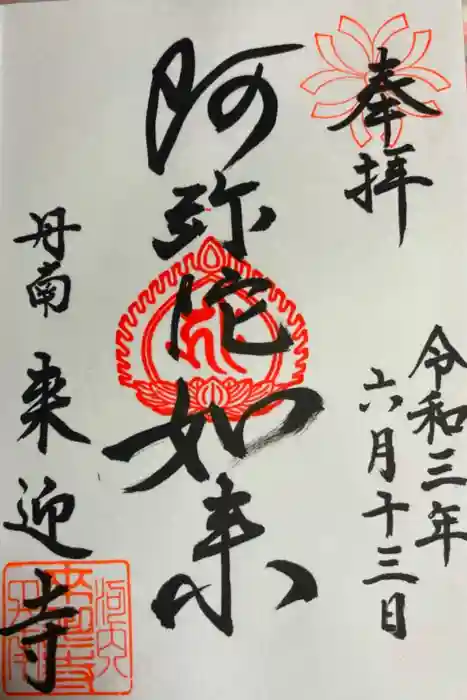 奉拝
令和三年
六月十三日
阿弥陀如来
丹南
来迎寺